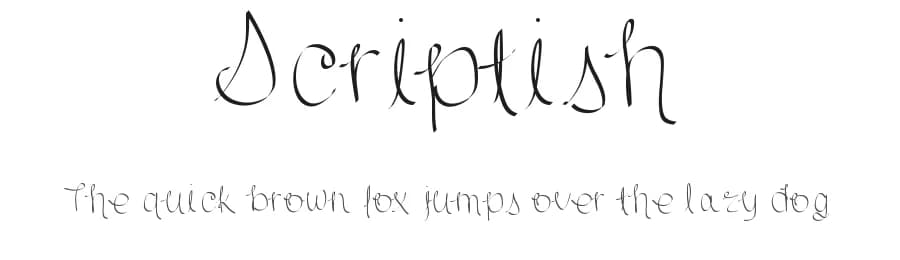 Scriptish
The quick brown fox jumps over the lazy dog